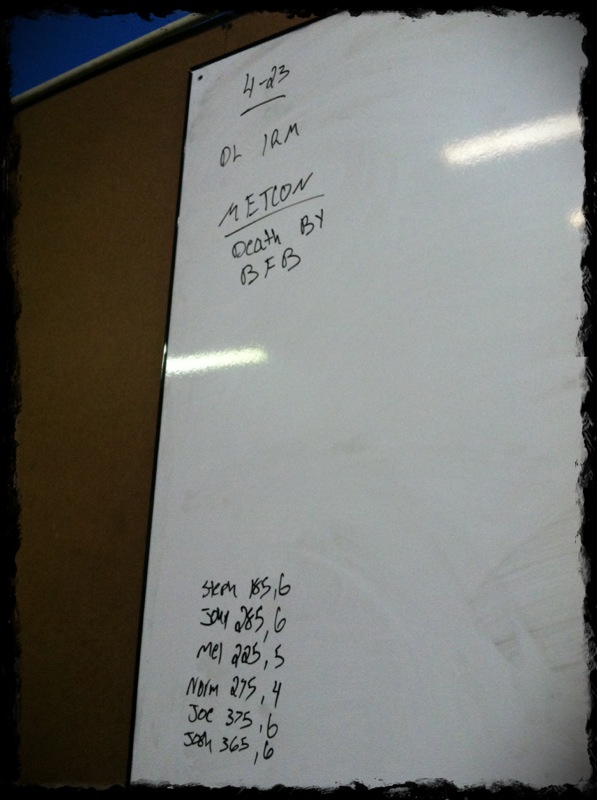 4-23
DL 1RM
METCON
Death BY
BFB
Steph 185,6
285,6
Mel 225,5
Norm 275,4
Joe 375,6
Josh 365,6